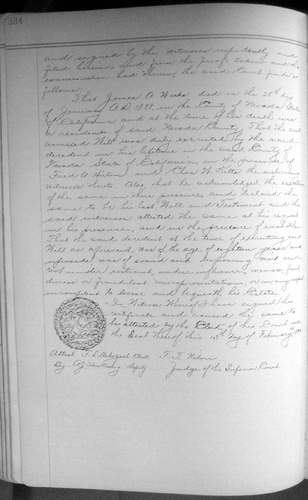 334
and signed by the witnesses respectively and
filed herein; and from the proofs taken and the
examination had therein the said Court finds as
follows:
That James A. Weeks died on the 28th day
of January A.D. 1899, in the County of Nevada State
of California, and at the time of his death was
a resident of said Nevada County. That the
annexed Will was duly executed by the said
decedent in his lifetime in the said County of
Nevada State of California in the presence of
Fred A. and Chas. W. Kitts the subscribing
witnesses thereto. Also that he acknowledged the execution
of the same in their presence, and declared the
same to be his last Will and Testament and the
said witnesses attested the same at his request
in his presence, and in the presence of each other
That the said decedent at the time of executing said
Will as aforesaid, was of the age of eighteen years and
upwards, was of sound and disposing mind and
not under restraint, undue influence, menace, fraud
duress or fraudulent misrepresentation, nor in any respect
incompetent to devise and bequeath his Estate.
In Witness Whereof I have signed this
certificate and caused the same to
be attested by the Clerk of this Court under
the Seal thereof this day of February
Attest. F. T. Nilon
By Deputy Judge of the Superior Court